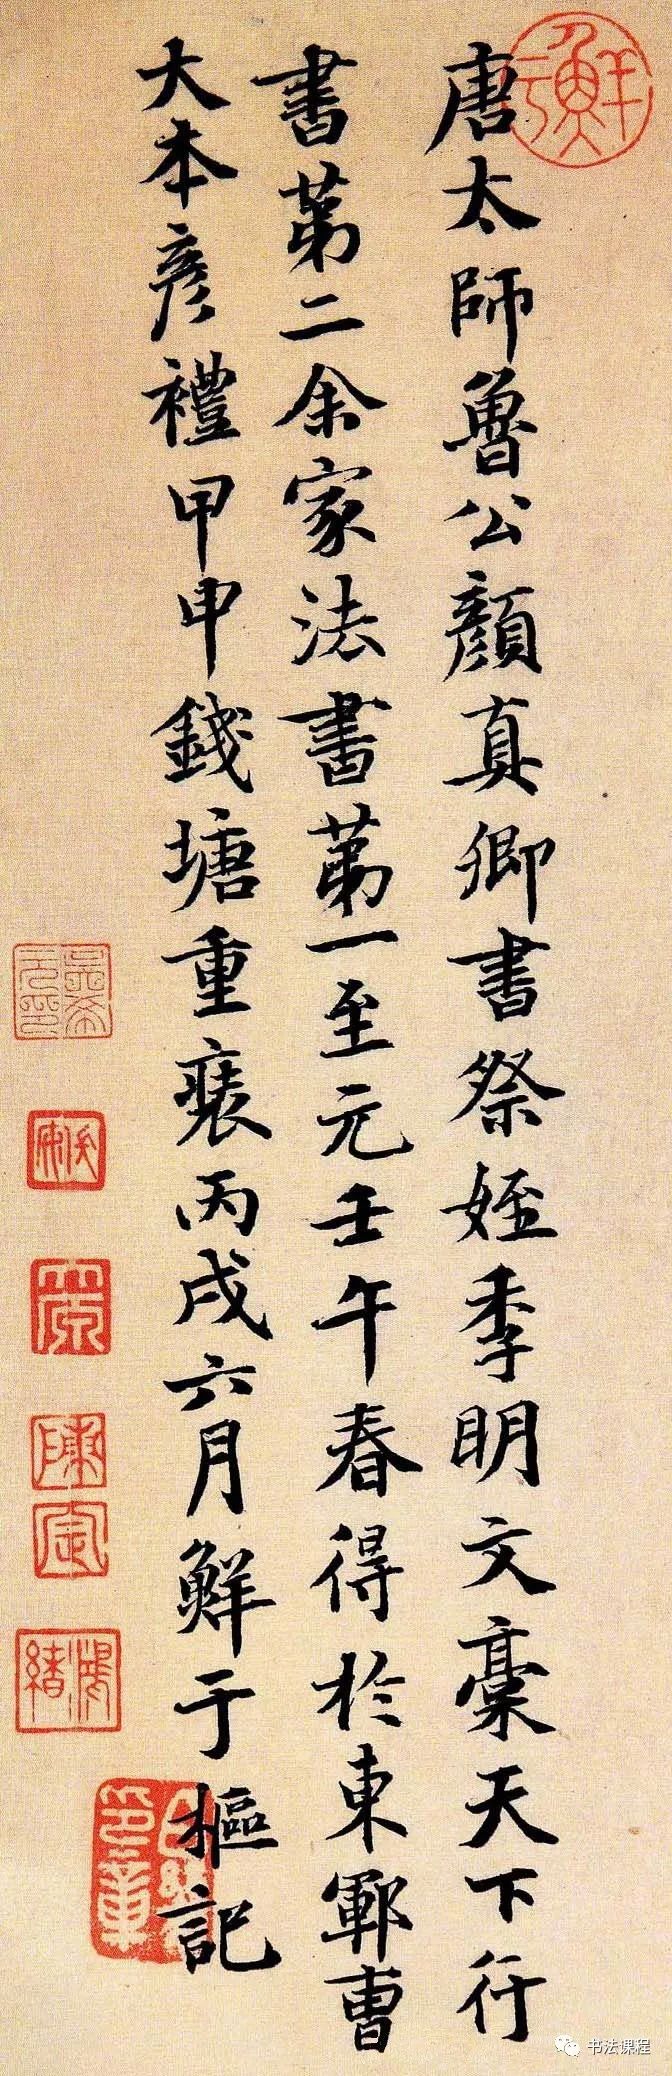 唐太師魯公顔真卿書祭姪季明文藁天下行
書第二余家法書第一至元壬午春得於東鄆曹
大本彦禮甲申錢塘重裝丙戌六月鮮于樞記
书法课程